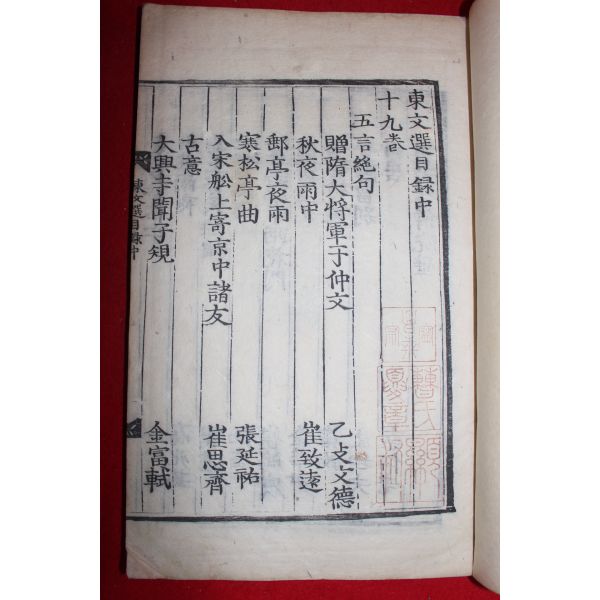 東文選目録中
十九卷
五言絶句
贈隋大將軍于仲文 乙支文德
秋夜雨中 崔致遠
郵亭夜雨
寒松亭曲 張延祐
入宋船上寄京中諸友 崔思齊
古意
大興寺聞子規 金富軾
東文選目録中